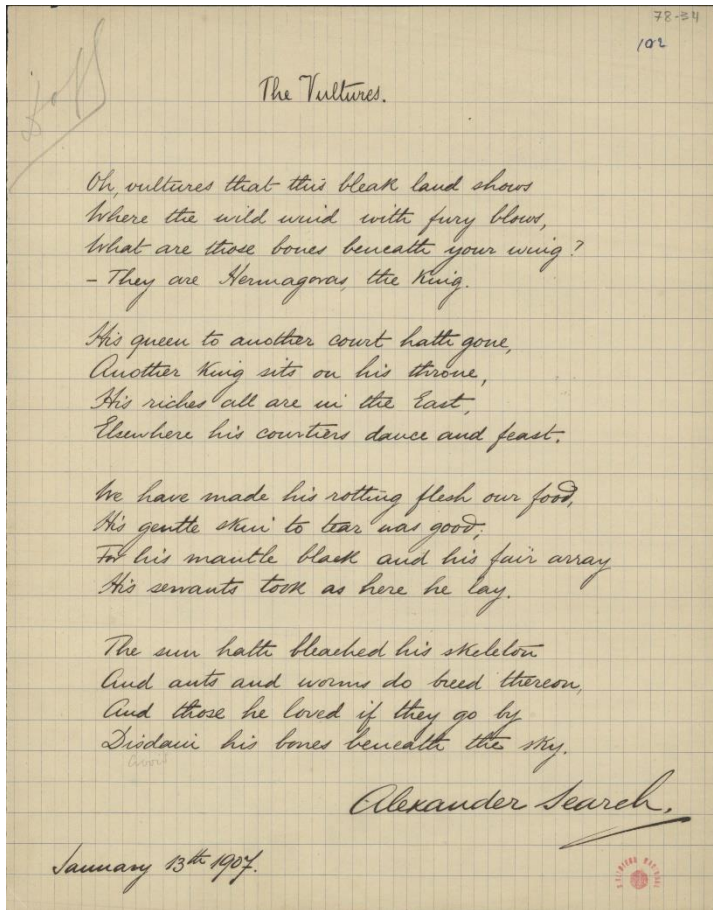 78-34
102
The Vultures.
Oh, vultures that this bleak land shows
Where the wild wind with fury blows,
What are those bones beneath your wing?
– They are Hermagoras, the King.
His queen to another court hath gone,
Another King sits on his throne,
His riches all are in the East,
Elsewhere his courtiers dance and feast.
We have made his rotting flesh our food,
His gentle skin to tear was good;
For his mantle black and his fair array
His servants took as here he lay.
The sun hath bleached his skeleton
And ants and worms do breed thereon,
And those he loved if they go by
Disdain his bones beneath the sky.
Avoid
Alexander Search.
January 13th 1907.